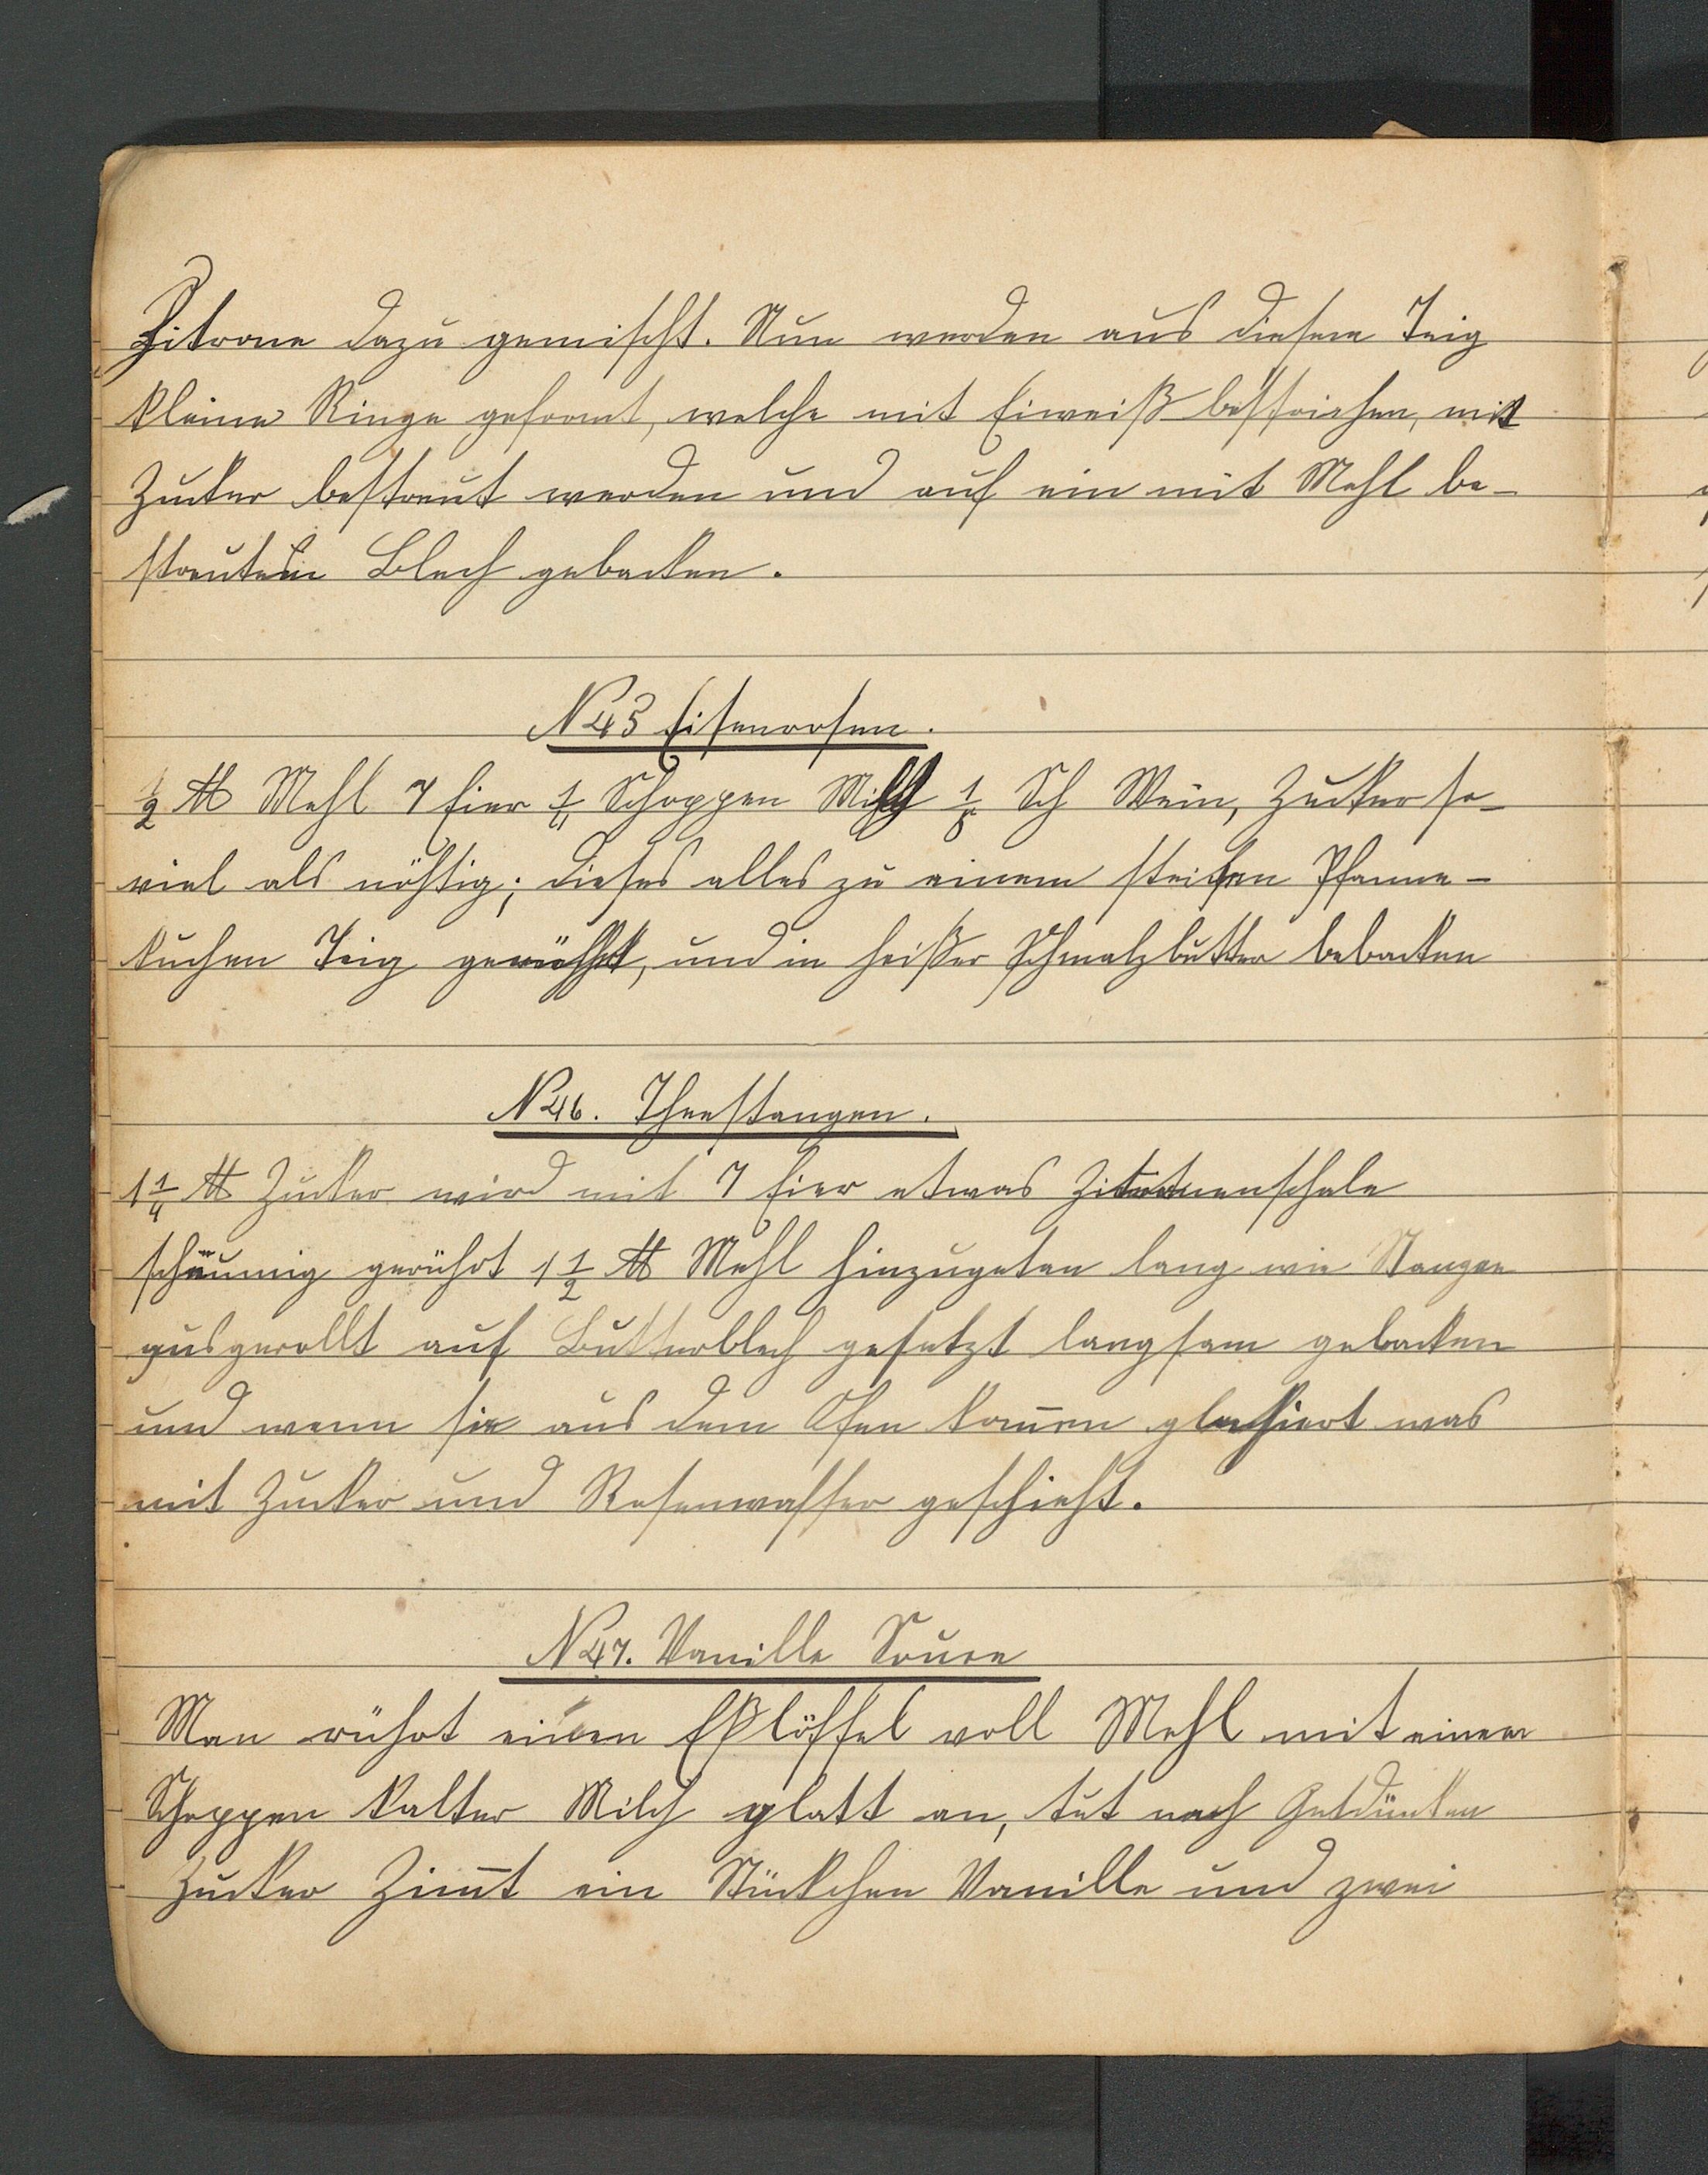 Zitrone dazu gemischt. Nun werden aus diesem Teig
kleine Ringe geformt, welche mit Eiweiß bestrichen, mit
Zucker bestreut werden und auf ein mit Mehl be-
streutem Blech gebacken.
N 45 Eisenrosen.
1/2 ℔ Mehl 7 Eier 1/4 Schoppen Milch 1/8 Sch Wein, Zucker so-
viel als nöhtig; dieses alles zu einem steifen Pfanne-
kuchen Teig gerührt, und in heißer Schmalzbutter bebacken
N 46. Theestangen.
1 1/4 ℔ Zucker wird mit 7 Eier etwas Zitronenschale
schäumig gerührt 1 1/2 ℔ Mehl hinzugetan lang wie Stangen
ausgerollt auf Butterblech gesetzt langsam gebacken
und wenn sie aus dem Ofen kom̄en glasiert was
mit Zucker und Rosenwasser geschieht.
N 47. Vanille Souce
Man rührt einen Eßlöffel voll Mehl mit einem
Schoppen kalter Milch glatt an, tut nach Gutdünken
Zucker Zim̄t ein Stückchen Vanille und zwei